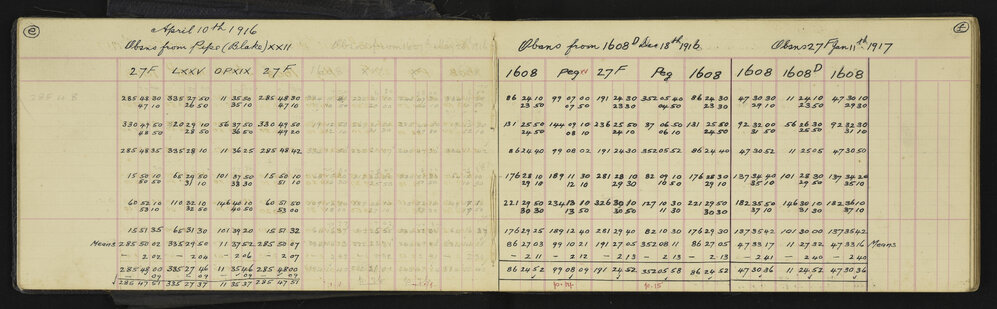 e
April 10th 1916
Obsns from Pipe (Blake) XXII
27F LXXV OPXIX 27F
285 48 30 335 27 50 11 35 50 285 48 30
47 10 26 50 35 10 47 10
330 49 50 20 29 10 56 37 50 330 49 50
48 50 28 50 36 50 49 20
285 48 35 335 28 10 11 36 25 285 48 42
15 50 10 65 29 50 101 37 50 15 50 10
50 50 31 10 38 30 51 10
60 52 10 110 32 10 146 40 10 60 51 50
53 10 32 50 40 50 53 00
15 51 35 65 31 30 101 39 20 15 51 32
Means 285 50 02 335 29 50 11 37 52 285 50 07
- 2 02 - 2 04 - 2 06 - 2 07
285 48 00 335 27 46 11 35 46 285 48 00
- 09 - 09 - 09 - 09
285 47 51 335 27 37 11 35 37 285 47 51
f
Obsns from 1608 D Dec 18th 1916
Obsns 27F Jan 11th 1917
1608 peg 27F Peg 1608 1608 1608D 1608
86 24 10 99 07 00 191 24 30 352 05 40 86 24 30 47 30 30 11 24 10 47 30 10
23 50 07 50 23 30 04 50 23 30 29 10 23 50 29 30
131 25 50 144 09 10 236 25 50 37 06 50 131 25 50 92 32 00 56 26 30 92 32 30
24 50 08 10 24 10 06 10 24 50 31 50 25 50 31 10
86 24 40 99 08 02 191 24 30 352 05 52 86 24 40 47 30 52 11 25 05 47 30 50
176 28 10 189 11 30 281 28 10 82 09 10 176 28 30 137 34 40 101 28 30 137 34 20
29 10 12 10 29 30 10 50 29 10 35 10 29 50 35 10
221 29 50 234 13 10 326 30 10 127 10 30 221 29 50 182 35 50 146 30 10 182 36 10
30 30 13 50 30 50 11 30 30 30 37 10 31 30 37 10
176 29 25 189 12 40 281 29 40 82 10 30 176 29 30 137 35 42 101 30 00 137 35 42
86 27 03 99 10 21 191 27 05 352 08 11 86 27 05 47 33 17 11 27 32 47 33 16 Means
- 2 11 - 2 12 - 2 13 - 2 13 - 2 13 - 2 41 - 2 40 - 2 40
86 24 52 99 08 09 191 24 52 352 05 58 86 24 52 47 30 36 11 24 52 47 30 36
p. 14 p. 15